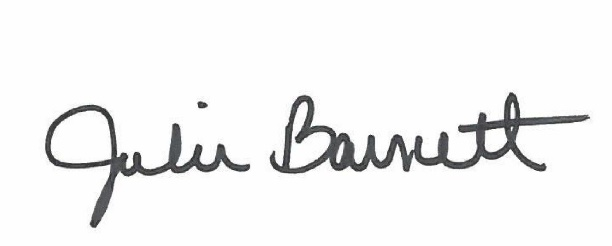 Julie Barnett